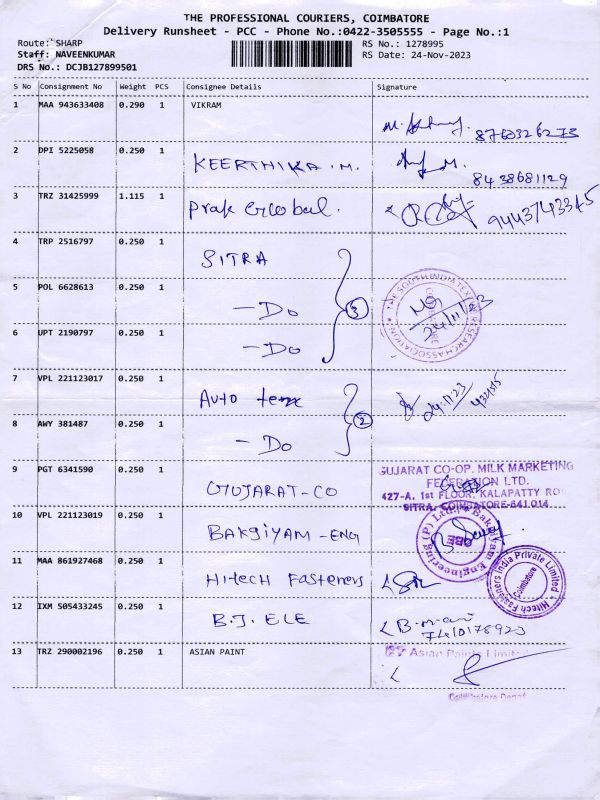 THE PROFESSIONAL COURIERS, COIMBATORE
Delivery Runsheet - PCC - Phone No.:0422-3505555 - Page No.:1
Route: SHARP
RS No.: 1278995
Staff: NAVEENKUMAR
RS Date: 24-Nov-2023
DRS No.: DCJB127899501
S No Consignment No Weight PCS Consignee Details Signature
1 MAA 943633408 0.290 1 VIKRAM
8760326273
2 DPI 5225058 0.250 1 KEERTHIKA.M.
8438681129
3 TRZ 31425999 1.115 1 Prak Global.
9443743345
4 TRP 2516797 0.250 1 SITRA
5 POL 6628613 0.250 1 - Do 3
THE SOUTH INDIA TEXTILE RESEARCH ASSOCIATION
COIMBATORE
24/11/23
6 UPT 2190797 0.250 1 - Do
7 VPL 221123017 0.250 1 Auto tex
24.11.23
8 AWY 381487 0.250 1 - Do 2
9 PGT 6341590 0.250 1 GUJARAT-CO
GUJARAT CO-OP. MILK MARKETING
FEDERATION LTD.
427-A, 1st FLOOR, KALAPATTY RO
SITRA, COIMBATORE-641 014.
10 VPL 221123019 0.250 1 BAKGIYAM-ENG
Bakgiyam Engineering (P) Ltd.,
CBE
11 MAA 861927468 0.250 1 Hitech Fasteners
Hitech Fasteners India Private Limited
Coimbatore
12 IXM 505433245 0.250 1 B.J. ELE
B.m.ari
7410178923
13 TRZ 290002196 0.250 1 ASIAN PAINT
Asian Paints Limited
Coimbatore Depot